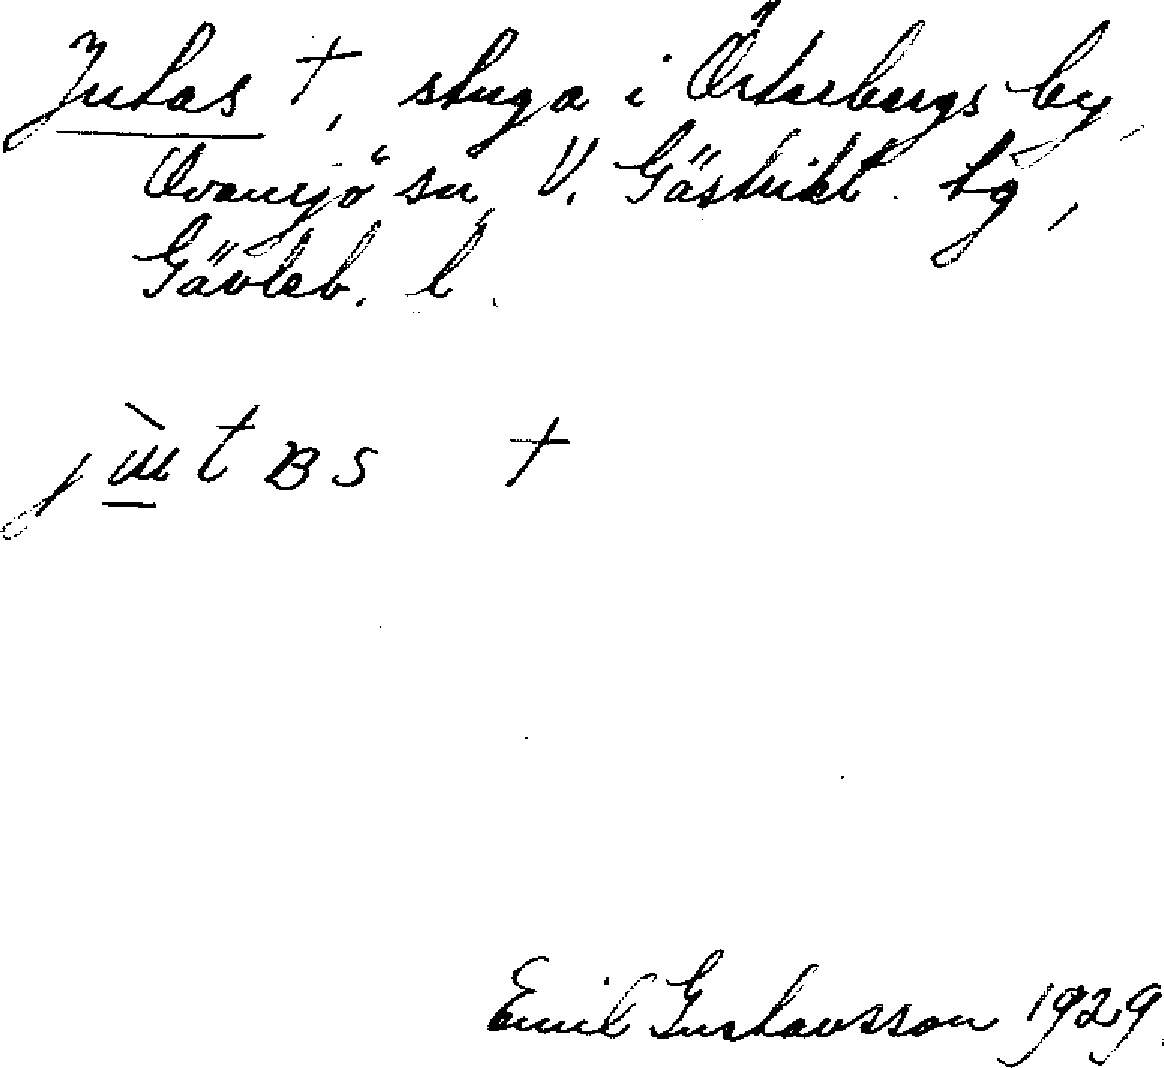 Jutas †, stuga i Österbergs by,
Ovansjö sn, V. Gästrikl. tg,
Gävleb. l.
Emil Gustavsson 1929